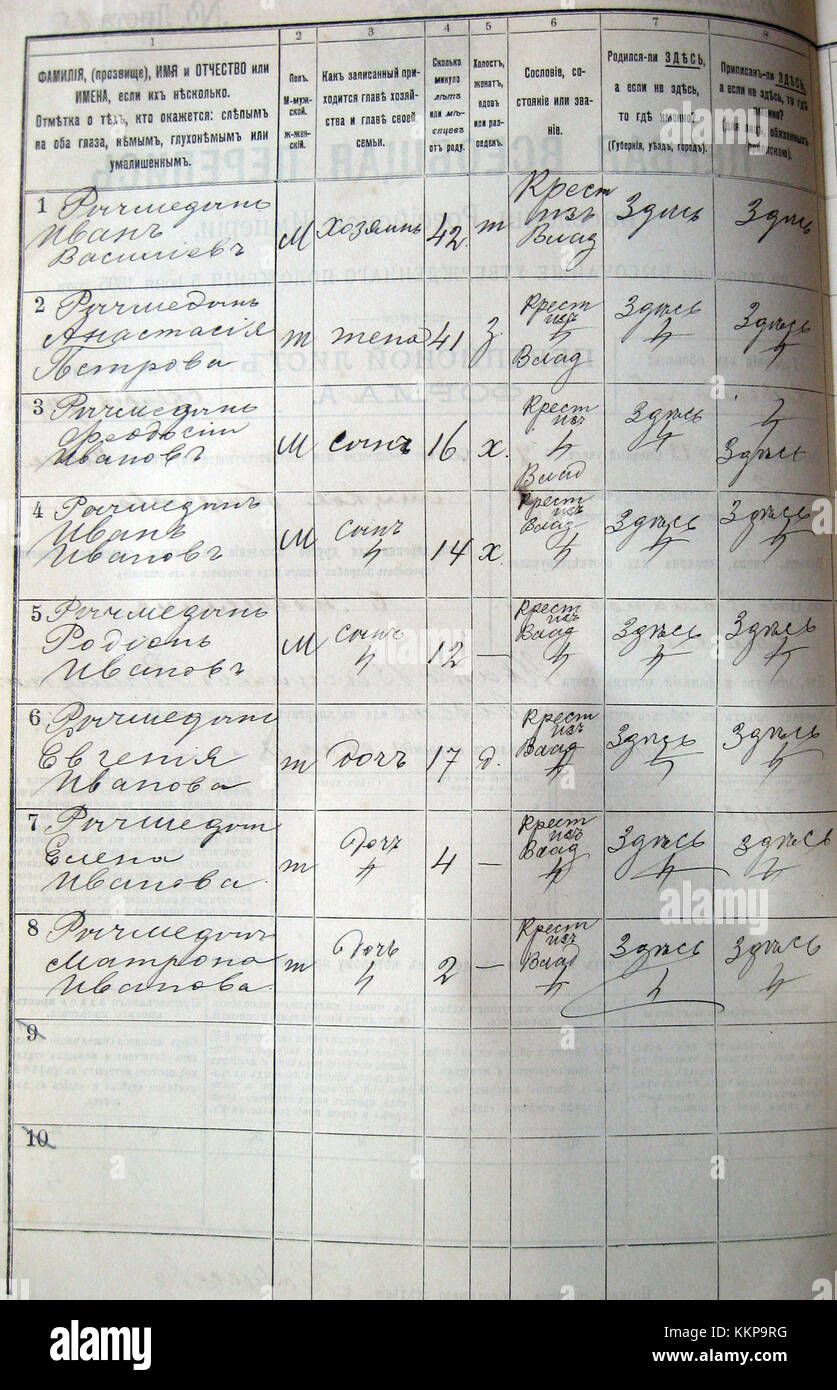 № Листа
1 2 3 4 5 6 7 8
ФАМИЛІЯ, (прозвище), ИМЯ и ОТЧЕСТВО или
ИМЕНА, если ихъ нѣсколько.
Отмѣтка о тѣхъ, кто окажется: слѣпымъ
на оба глаза, нѣмымъ, глухонѣмымъ или
умалишеннымъ.
Полъ.
М-муж-
ской.
Ж-жен-
скій.
Какъ записанный при-
ходится главѣ хозяй-
ства и главѣ своей
семьи.
Сколько
минуло
лѣтъ
или мѣ-
сяцевъ
отъ роду.
Холостъ,
женатъ,
вдовъ
или раз-
веденъ.
Сословіе, со-
стояніе или зва-
ніе.
Родился-ли ЗДѢСЬ,
а если не здѣсь,
то гдѣ именно?
(Губернія, уѣздъ, городъ).
Приписанъ-ли ЗДѢСЬ,
а если не здѣсь, то гдѣ
именно?
(для лицъ, обязанныхъ
припискою).
1
Иванъ
Васильевъ
М Хозяинъ 42
Крест
изъ
Влад
Здѣсь Здѣсь
2
Анастасія
Петрова
ж жена 41
Крест
изъ
Влад
Здѣсь Здѣсь
3
Ивановъ
М сынъ 16 х.
Крест
изъ
Влад
Здѣсь
Здѣсь
4
Иванъ
Ивановъ
М сынъ 14 х.
Крест
изъ
Влад
Здѣсь Здѣсь
5
Родіонъ
Ивановъ
М сынъ 12 —
Крест
изъ
Влад
Здѣсь Здѣсь
6
Евгенія
Иванова
ж дочь 17 д.
Крест
изъ
Влад
Здѣсь Здѣсь
7
Елена
Иванова
ж дочь 4 —
Крест
изъ
Влад
Здѣсь Здѣсь
8
Матрона
Иванова
ж дочь 2 —
Крест
изъ
Влад
Здѣсь Здѣсь
9
10
alamy
alamy
Image ID: KKP9RG
www.alamy.com